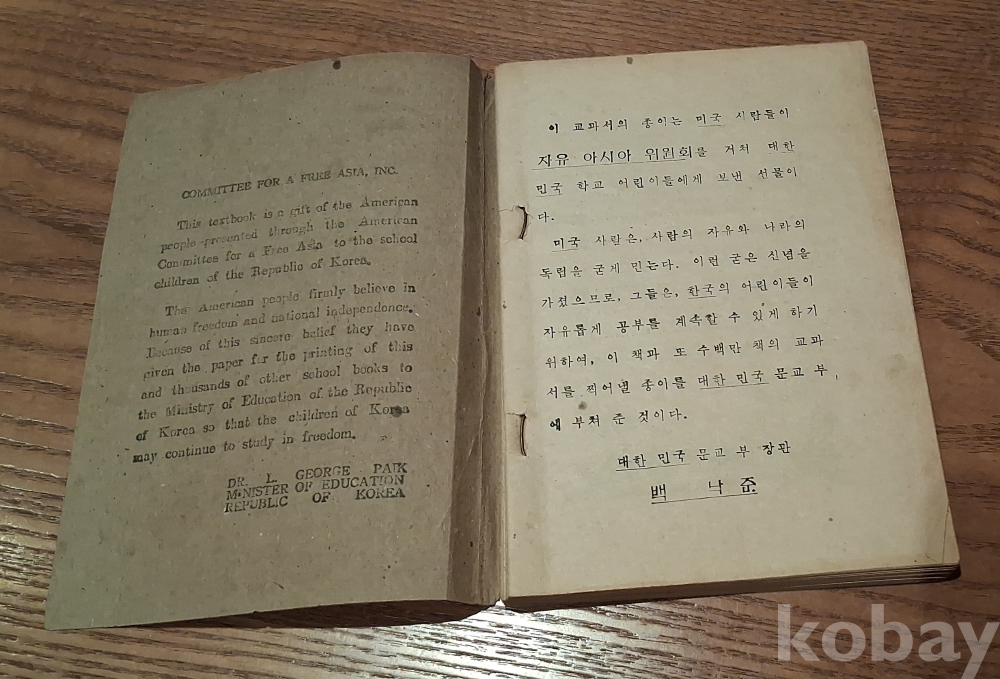 COMMITTEE FOR A FREE ASIA, INC.
This textbook is a gift of the American
people presented through the American
Committee for a Free Asia to the school
children of the Republic of Korea.
The American people firmly believe in
human freedom and national independence.
Because of this sincere belief they have
given the paper for the printing of this
and thousands of other school books to
the Ministry of Education of the Republic
of Korea so that the children of Korea
may continue to study in freedom.
DR. L. GEORGE PAIK
MINISTER OF EDUCATION
REPUBLIC OF KOREA
이 교과서의 종이는 미국 사람들이
자유 아시아 위원회를 거쳐 대한
민국 학교 어린이들에게 보낸 선물이
다.
미국 사람은, 사람의 자유와 나라의
독립을 굳게 믿는다. 이런 굳은 신념을
가졌으므로, 그들은, 한국의 어린이들이
자유롭게 공부를 계속할 수 있게 하기
위하여, 이 책과 또 수백만 책의 교과
서를 찍어낼 종이를 대한 민국 문교 부
에 부쳐 준 것이다.
대한 민국 문교 부 장관
백 낙 준
kobay